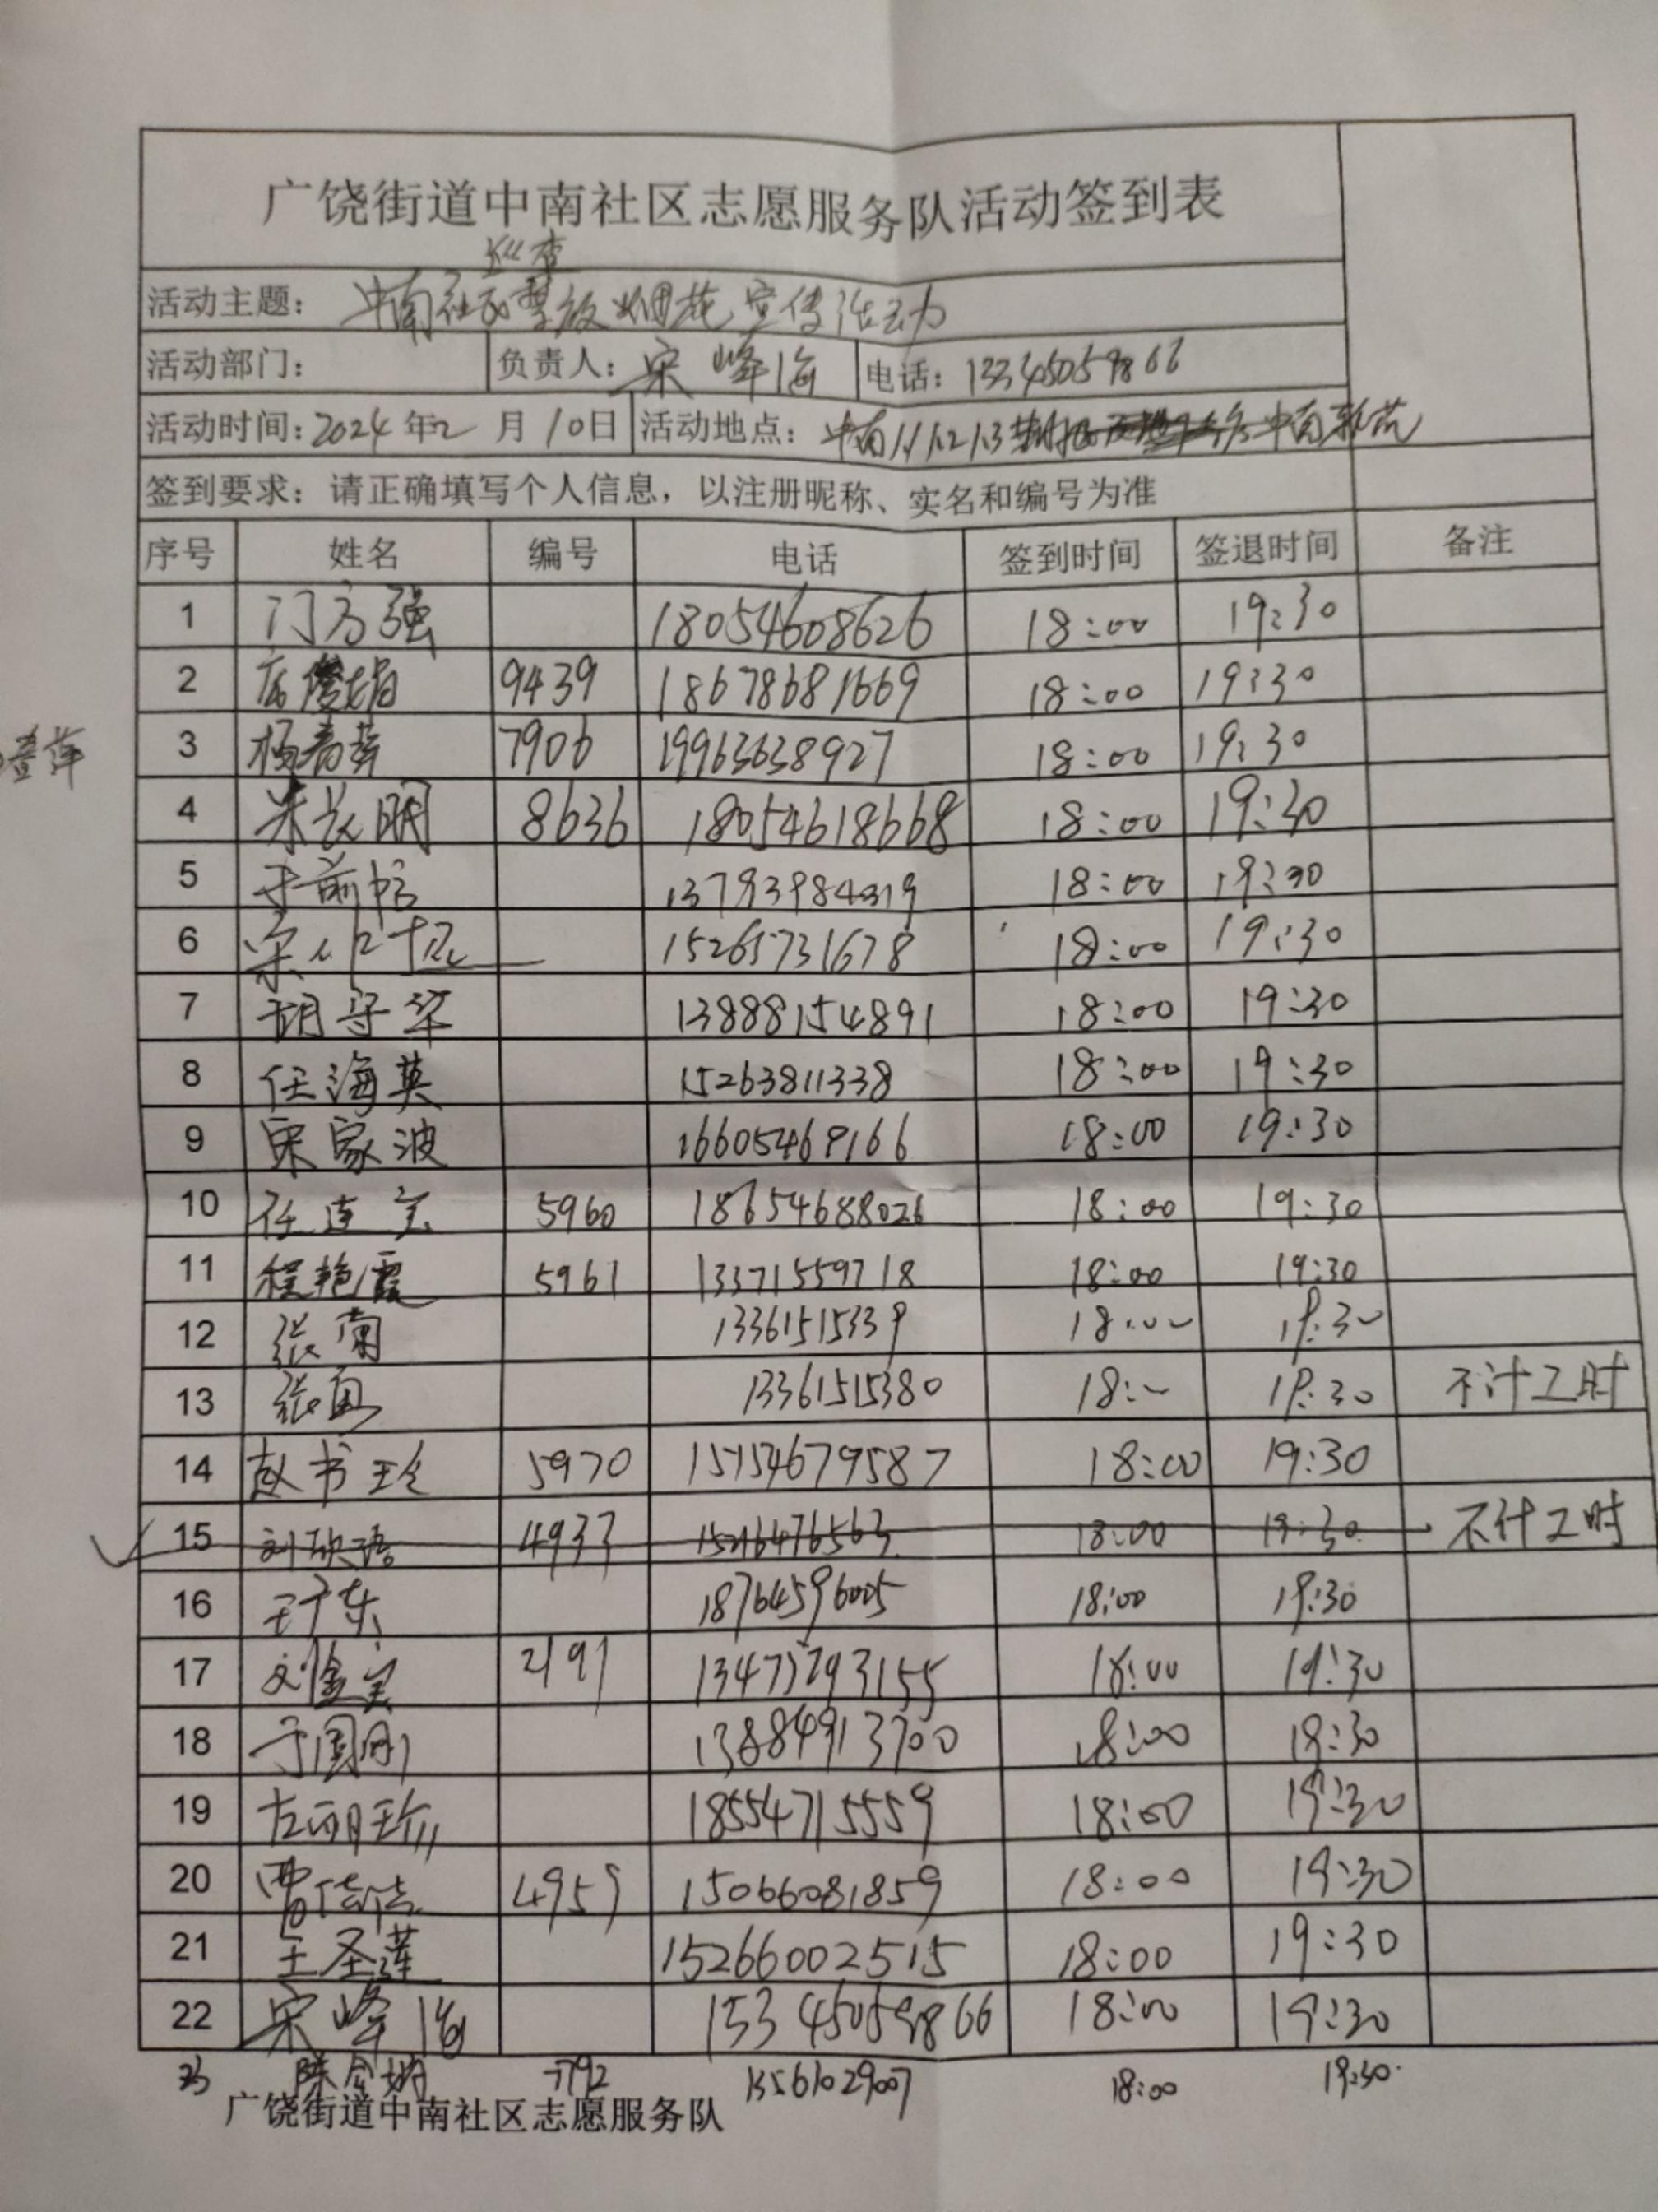 广饶街道中南社区志愿服务队活动签到表
巡查
活动主题: 中南社区禁放烟花宣传活动
活动部门: 负责人: 宋峰海 电话:
活动时间: 2024年2月10日 活动地点: 中南 中南新苑
签到要求: 请正确填写个人信息, 以注册昵称、实名和编号为准
序号 姓名 编号 电话 签到时间 签退时间 备注
1 门方强 18054608626 18:00 19:30
2 9439 18678681669 18:00 19:30
3 杨春萍 7906 19963638927 18:00 19:30
萱萍
4 朱长明 8636 18054618668 18:00 19:30
5 13793984319 18:00 19:30
6 宋 15265731678 18:00 19:30
7 胡守华 13888154891 18:00 19:30
8 任海英 15263811338 18:00 19:30
9 宋家波 16605469166 18:00 19:30
10 任连宝 5960 18654688026 18:00 19:30
11 程艳霞 5961 13371559718 18:00 19:30
12 张南 13361515339 18:00 19:30
13 张勇 13361515380 18:00 19:30 不计工时
14 赵书玲 5970 15154679587 18:00 19:30
15 刘欣语 4937 15216476563 18:00 19:30 不计工时
16 王广东 18764596005 18:00 19:30
17 刘金宝 2191 18:00 19:30
18 于国刚 13884913700 18:00 19:30
19 左丽珍 18554715559 18:00 19:30
20 曹佳洁 4959 15066081859 18:00 19:30
21 王圣莲 15266002515 18:00 19:30
22 宋峰海 18:00 19:30
23 陈 7792 13561029007 18:00 19:30
广饶街道中南社区志愿服务队